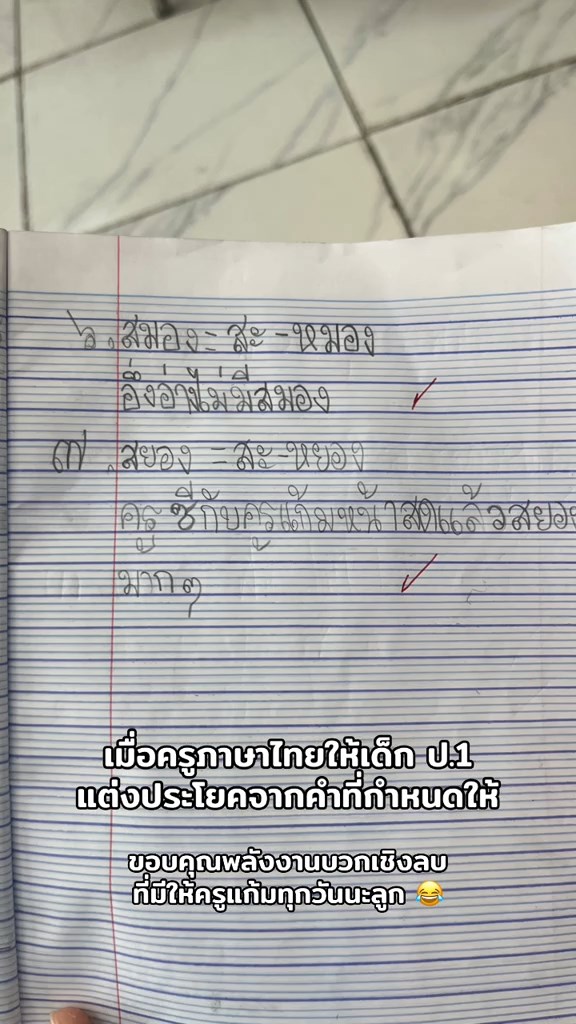 ๖. สมอง = สะ - หมอง
อึ่งอ่างไม่มีสมอง
๗. สยอง = สะ - หยอง
ครูซีกับครูแก้มหน้าสดแล้วสยอง
มากๆ
เมื่อครูภาษาไทยให้เด็ก ป.1
แต่งประโยคจากคำที่กำหนดให้
ขอบคุณพลังงานบวกเชิงลบ
ที่มีให้ครูแก้มทุกวันนะลูก 😂